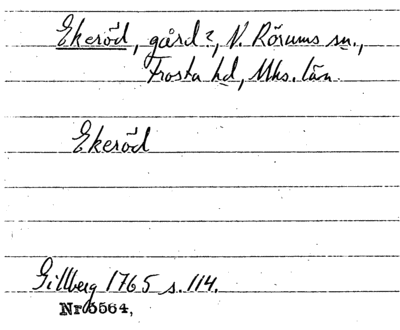 Ekeröd, gård?, N. Rörums sn.,
Frosta hd, Mks. län.
Ekeröd
Gillberg 1765 s. 114.
Nr 5564,